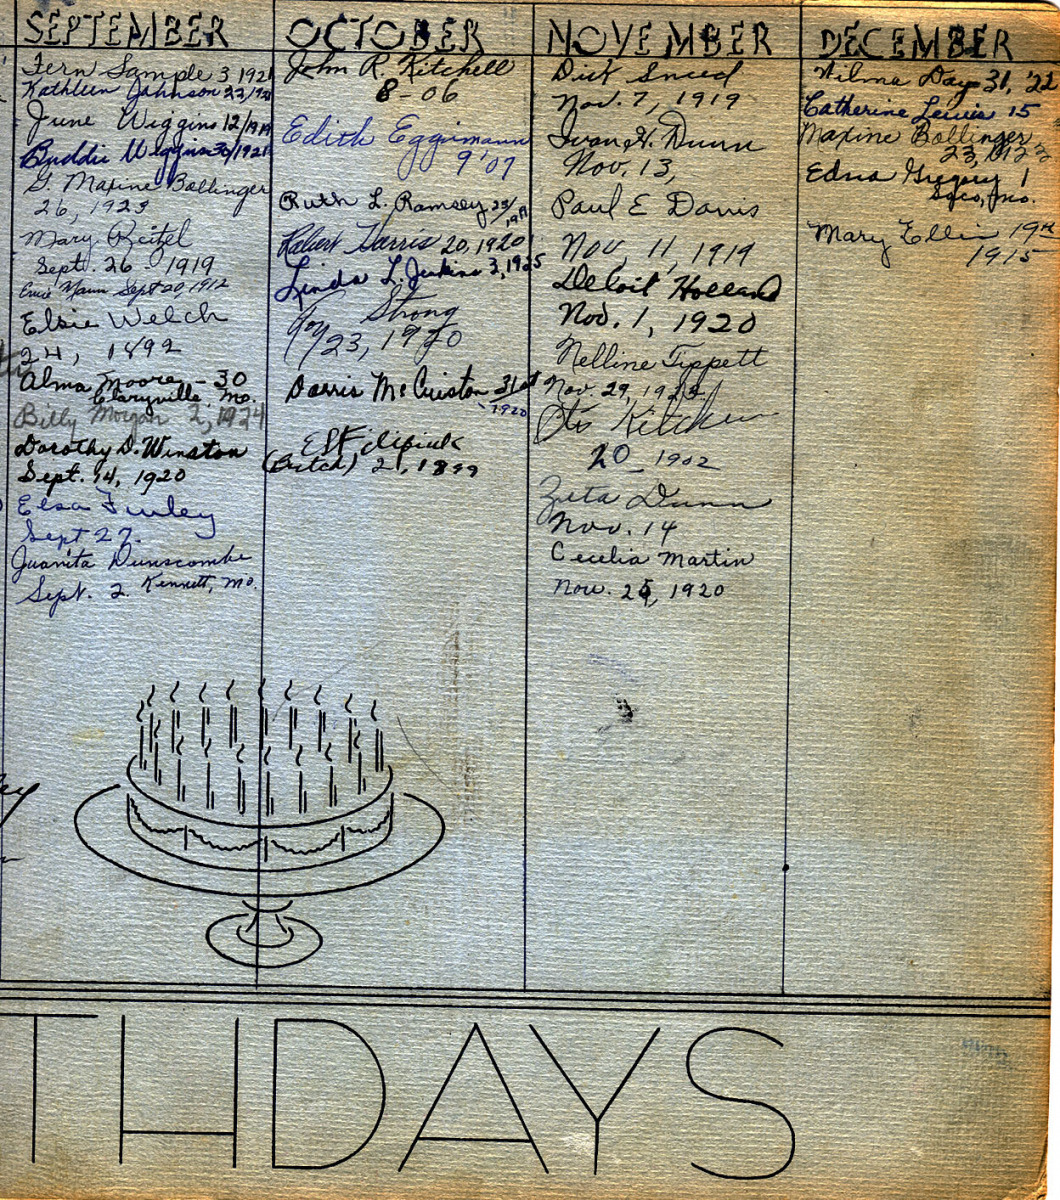 SEPTEMBER
Fern Sample 3 1921
Kathleen Johnson 22,
June Wiggins 12/1919
Buddie Wiggins 30/1921
G. Maxine Bollinger
26, 1923
Mary Reitzel
Sept. 26 - 1919
Mann Sept 20, 1912
Elsie Welch
24, 1892
Alma Moore - 30
Claryville, Mo.
Billy Morgan 2, 1924
Dorothy D. Winston
Sept. 14, 1920
Elsa Finley
Sept 27.
Juanita Dunscombe
Sept. 2 Kennett, Mo.
OCTOBER
John R. Kitchell
8-06
Edith Eggimann
9 '07
Ruth L. Ramsey 25/
Robert Harris 20, 1920
Linda L. Jenkins 3, 1925
Roy Strong
23, 1920
Dorris McCuiston 31st
1920
(Butch) 21, 1899
NOVEMBER
Dick Sneed
Nov. 7, 1919
Ivan H. Dunn
Nov. 13,
Paul E Davis
Nov, 11, 1919
DeLoit Holland
Nov. 1, 1920
Nelline Tippett
Nov. 29,
Otis Kitchen
20 - 1902
Zeta Dunn
Nov. 14
Cecelia Martin
Nov. 25, 1920
DECEMBER
Wilma Day 31, '22
Catherine Lewis 15
Maxine Bollinger
23,
Edna Gregory 1
Mary Ellis 19th
1915
THDAYS